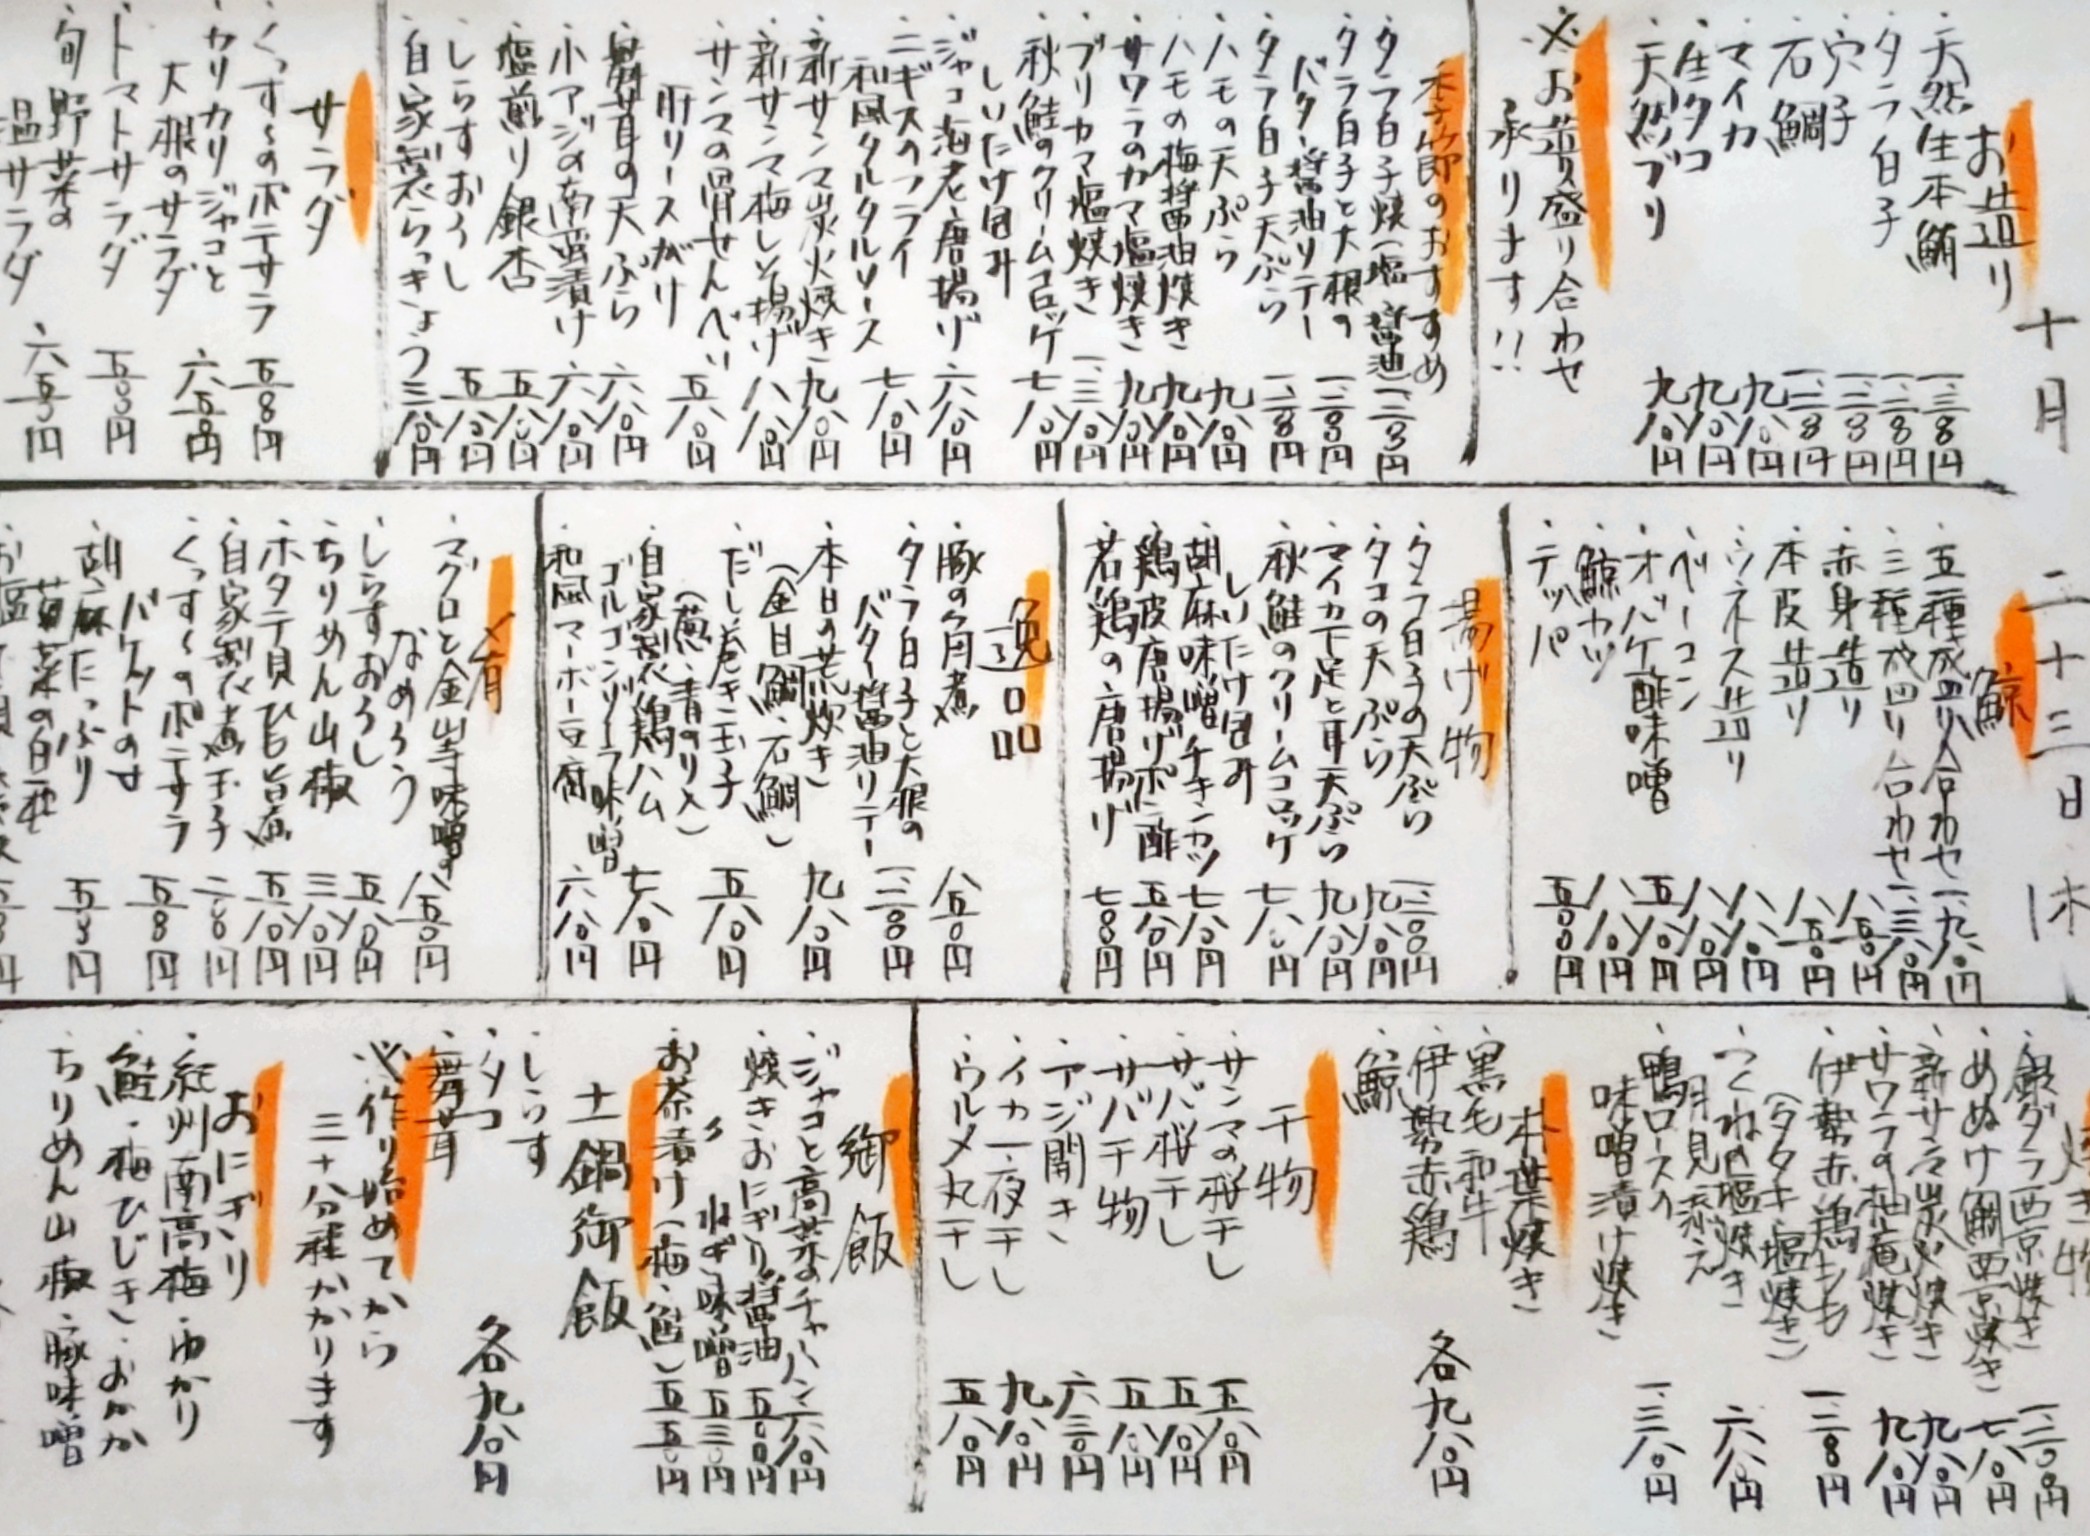 十月 二十三日 休
お造り
・天然生本鮪 一、三八〇円
・タラ白子 一、二八〇円
・穴子
・石鯛
・マイカ 九八〇円
・生タコ 九八〇円
・天然ブリ 九八〇円
※お造り盛り合わせ
承ります!!
季節のおすすめ
・タラ白子焼(塩・醤油)
・タラ白子と大根の
バター醤油ソテー
・タラ白子天ぷら
・ハモの天ぷら 九八〇円
・ハモの梅醤油焼き 九八〇円
・サワラのカマ塩焼き 九八〇円
・ブリカマ塩焼き 一、三八〇円
・秋鮭のクリームコロッケ 七八〇円
しいたけ包み
・ジャコ海老唐揚げ 六八〇円
・ニギスのフライ 七八〇円
和風タルタルソース
・新サンマ炭火焼き 九八〇円
・新サンマ梅しそ揚げ 八八〇円
・サンマの骨せんべい 五八〇円
肝リースがけ
・舞茸の天ぷら 六八〇円
・小アジの南蛮漬け 六八〇円
・塩煎り銀杏 五八〇円
・しらすおろし 五八〇円
・自家製らっきょう 三八〇円
サラダ
・くっすーのポテサラ 五八〇円
・カリカリジャコと
大根のサラダ 六五〇円
・トマトサラダ 五八〇円
・旬野菜の
温サラダ 六五〇円
鯨
・五種盛り合わせ 一、九八〇円
・三種盛り合わせ 一、三八〇円
・赤身造り 八五〇円
・本皮造り 八五〇円
・ウネス造り 八八〇円
・ベーコン 八八〇円
・オバケ酢味噌 五八〇円
・鯨カツ 八八〇円
・テッパ 五〇〇円
揚げ物
・タラ白子の天ぷら
・タコの天ぷら 九八〇円
・マイカ下足と耳天ぷら 九八〇円
・秋鮭のクリームコロッケ
しいたけ包み 七八〇円
・胡麻味噌チキンカツ 七八〇円
・鶏皮唐揚げポン酢 五八〇円
・若鶏の唐揚げ 七八〇円
逸品
・豚の角煮 八五〇円
・タラ白子と大根の
バター醤油ソテー
・本日の荒炊き 九八〇円
(金目鯛・石鯛)
・だし巻き玉子 五八〇円
(葱・青のり入)
・自家製鶏ハム 七八〇円
ゴルゴンゾーラ味噌
・和風マーボー豆腐 六八〇円
〆肴
・マグロと金山寺味噌の
なめろう 八五〇円
・しらすおろし 五八〇円
・ちりめん山椒 三八〇円
・ホタテ貝ひも旨煮 五八〇円
・自家製煮玉子 二八〇円
・くっすーのポテサラ
バケットのせ 五八〇円
・胡麻たっぷり
菊菜の白和 五八〇円
焼き物
・銀ダラ西京焼き
・めぬけ鯛西京焼き 七八〇円
・新サンマ炭火焼き 九八〇円
・サワラの柚庵焼き 九八〇円
・伊勢赤鶏もも
(タタキ・塩焼き)
・つくねの塩焼き
月見添え 六八〇円
・鴨ロースの
味噌漬け焼き 一、三八〇円
朴葉焼き
・黒毛和牛
・伊勢赤鶏 各九八〇円
・鯨
干物
・サンマの桜干し 五八〇円
・サバ桜干し 五八〇円
・サバ干物 五八〇円
・アジ開き 六三〇円
・イカ一夜干し 九八〇円
・ウルメ丸干し 五八〇円
御飯
・ジャコと高菜のチャーハン 六八〇円
・焼きおにぎり醤油 五〇〇円
・〃 ねぎ味噌 五三〇円
・お茶漬け(梅・鮭) 五五〇円
土鍋御飯
・しらす
・タコ 各九八〇円
・舞茸
※作り始めてから
三十分程かかります
おにぎり
・紀州南高梅・ゆかり
・鮭・梅ひじき・おかか
・ちりめん山椒・豚味噌